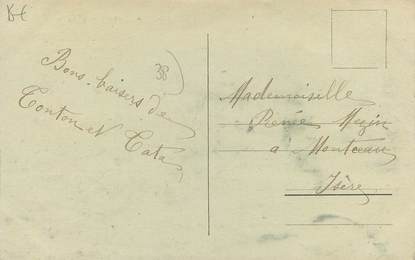 Bons baisers de
Tonton et Tata
38
Mademoiselle
Renée
a Montceau
Isère